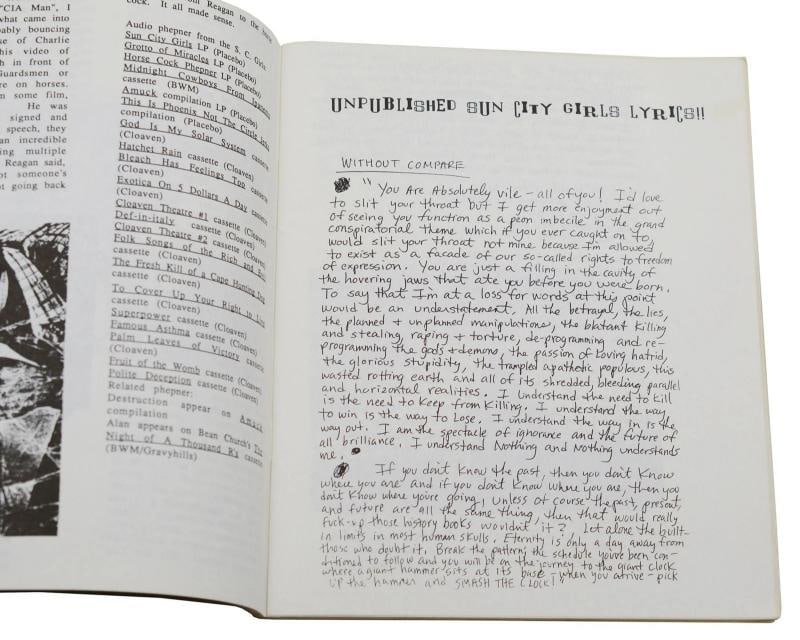 "CIA Man", I
what came into
bably bouncing
se of Charlie
his video of
th in front of
Guardsmen or
re on horses.
n some film,
He was
signed and
speech, they
an incredible
ing multiple
Reagan said,
ot someone's
ot going back
Reagan to the
cock. It all made sense.
Audio phepner from the S. C. Girls
Sun City Girls LP (Placebo)
Grotto of Miracles LP (Placebo)
Horse Cock Phepner LP (Placebo)
Midnight Cowboys From
cassette (BWM)
Amuck compilation LP (Placebo)
This Is Phoenix Not The Circle
compilation (Placebo)
God Is My Solar System cassette
(Cloaven)
Hatchet Rain cassette (Cloaven)
Bleach Has Feelings Too cassette
(Cloaven)
Exotica On 5 Dollars A Day cassette
(Cloaven)
Cloaven Theatre #1 cassette (Cloaven)
Def-in-italy cassette (Cloaven)
Cloaven Theatre #2 cassette (Cloaven)
Folk Songs of the Rich and
cassette (Cloaven)
The Fresh Kill of a Cape Hunting
cassette (Cloaven)
To Cover Up Your Right to
cassette (Cloaven)
Superpower cassette (Cloaven)
Famous Asthma cassette (Cloaven)
Palm Leaves of Victory cassette
(Cloaven)
Fruit of the Womb cassette (Cloaven)
Polite Deception cassette (Cloaven)
Related phepner:
Destruction appear on Amuck
compilation
Alan appears on Bean Church's The
Night of A Thousand R's cassette
(BWM/Gravyhills)
UNPUBLISHED SUN CITY GIRLS LYRICS!!
WITHOUT COMPARE
"You Are Absolutely vile - all of you! I'd love
to slit your throat but I get more enjoyment out
of seeing you function as a peon imbecile in the grand
conspiratorial theme which if you ever caught on to,
would slit your throat not mine because I'm allowed
to exist as a facade of our so-called rights to freedom
of expression. You are just a filling in the cavity of
the hovering jaws that ate you before you were born.
To say that I'm at a loss for words at this point
would be an understatement. All the betrayal, the lies,
the planned + unplanned manipulations, the blatant killing
and stealing, raping + torture, de-programming and re-
programming the gods + demons, the passion of loving hatrid,
the glorious stupidity, the trampled apathetic populous, this
wasted rotting earth and all of its shredded, bleeding parallel
and horizontal realities. I understand the need to kill
is the need to keep from killing. I understand the way
to win is the way to lose. I understand the way in is the
way out. I am the spectacle of ignorance and the future of
all brilliance. I understand Nothing and Nothing understands
me.
If you don't know the past, then you don't know
where you are and if you don't know where you are, then you
don't know where you're going, unless of course the past, present,
and future are all the same thing, then that would really
fuck-up those history books wouldn't it? Let alone the built-
in limits in most human skulls. Eternity is only a day away from
those who doubt it. Break the pattern, the schedule you've been con-
ditioned to follow and you will be on the journey to the giant clock
where a giant hammer sits at its base, when you atrive - pick
up the hammer and SMASH THE CLOCK!